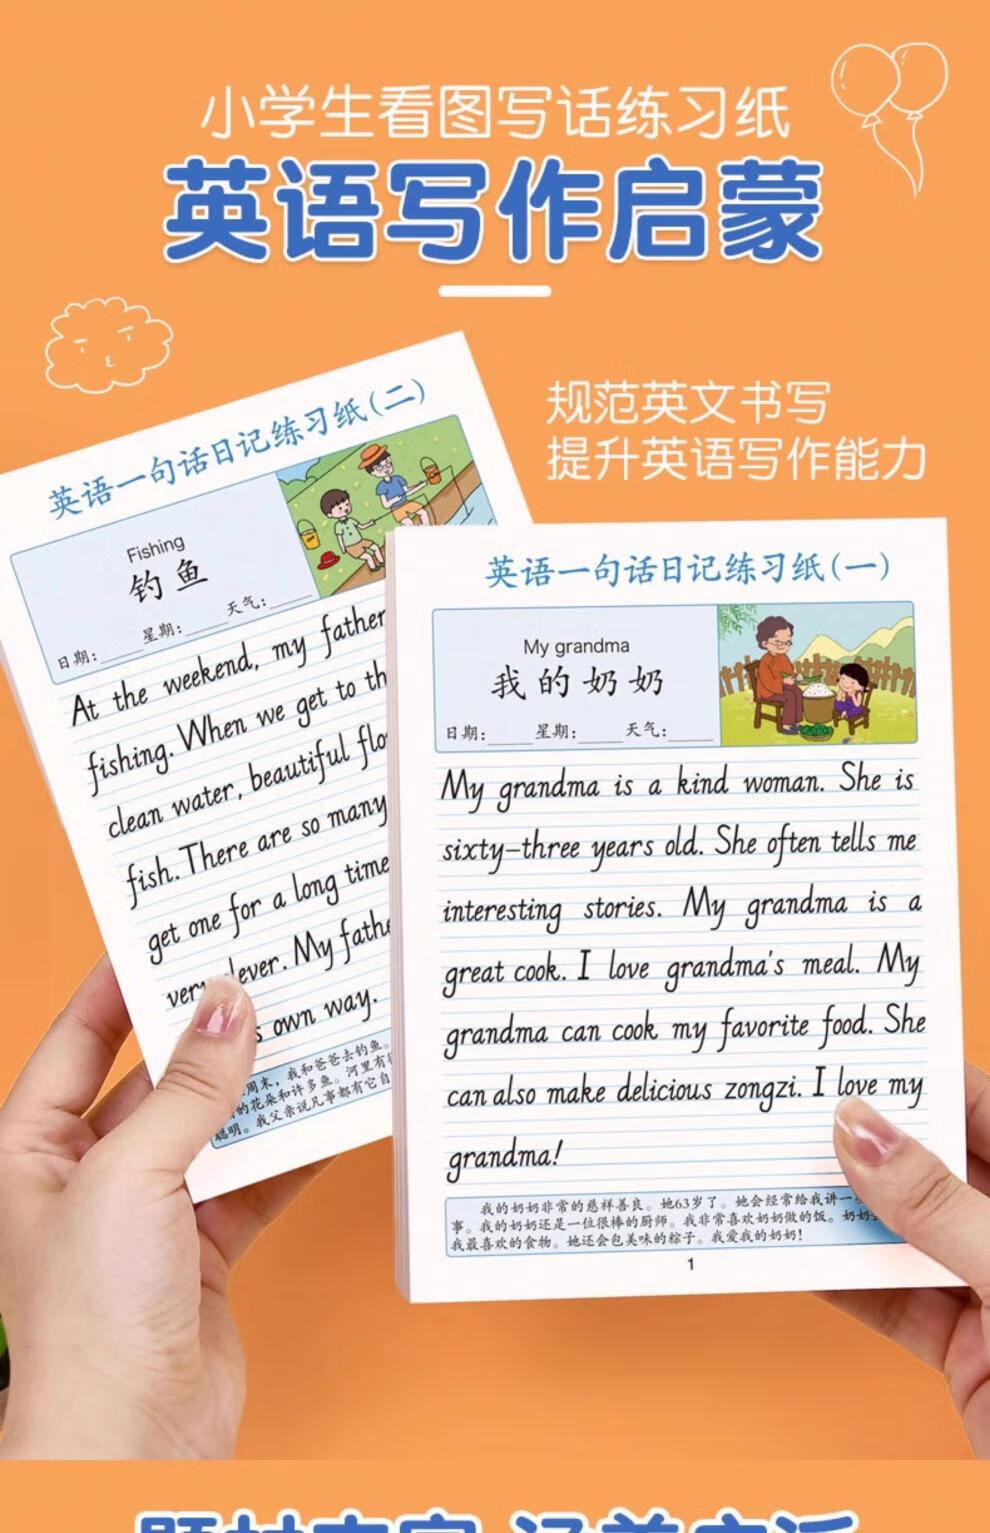 小学生看图写话练习纸
英语写作启蒙
规范英文书写
提升英语写作能力
英语一句话日记练习纸(二)
Fishing
钓鱼
日期: 星期: 天气:
At the weekend, my father
fishing. When we get to
clean water, beautiful
fish. There are so many
get one for a long time
My
own way.
周末，我和爸爸去钓鱼。
的花朵和许多鱼。河里有
聪明。我父亲说凡事都有它自
英语一句话日记练习纸(一)
My grandma
我的奶奶
日期: 星期: 天气:
My grandma is a kind woman. She is
sixty-three years old. She often tells me
interesting stories. My grandma is a
great cook. I love grandma's meal. My
grandma can cook my favorite food. She
can also make delicious zongzi. I love my
grandma!
我的奶奶非常的慈祥善良。她63岁了。她会经常给我讲一
事。我的奶奶还是一位很棒的厨师。我非常喜欢奶奶做的饭。奶奶
我最喜欢的食物。她还会包美味的粽子。我爱我的奶奶!
1